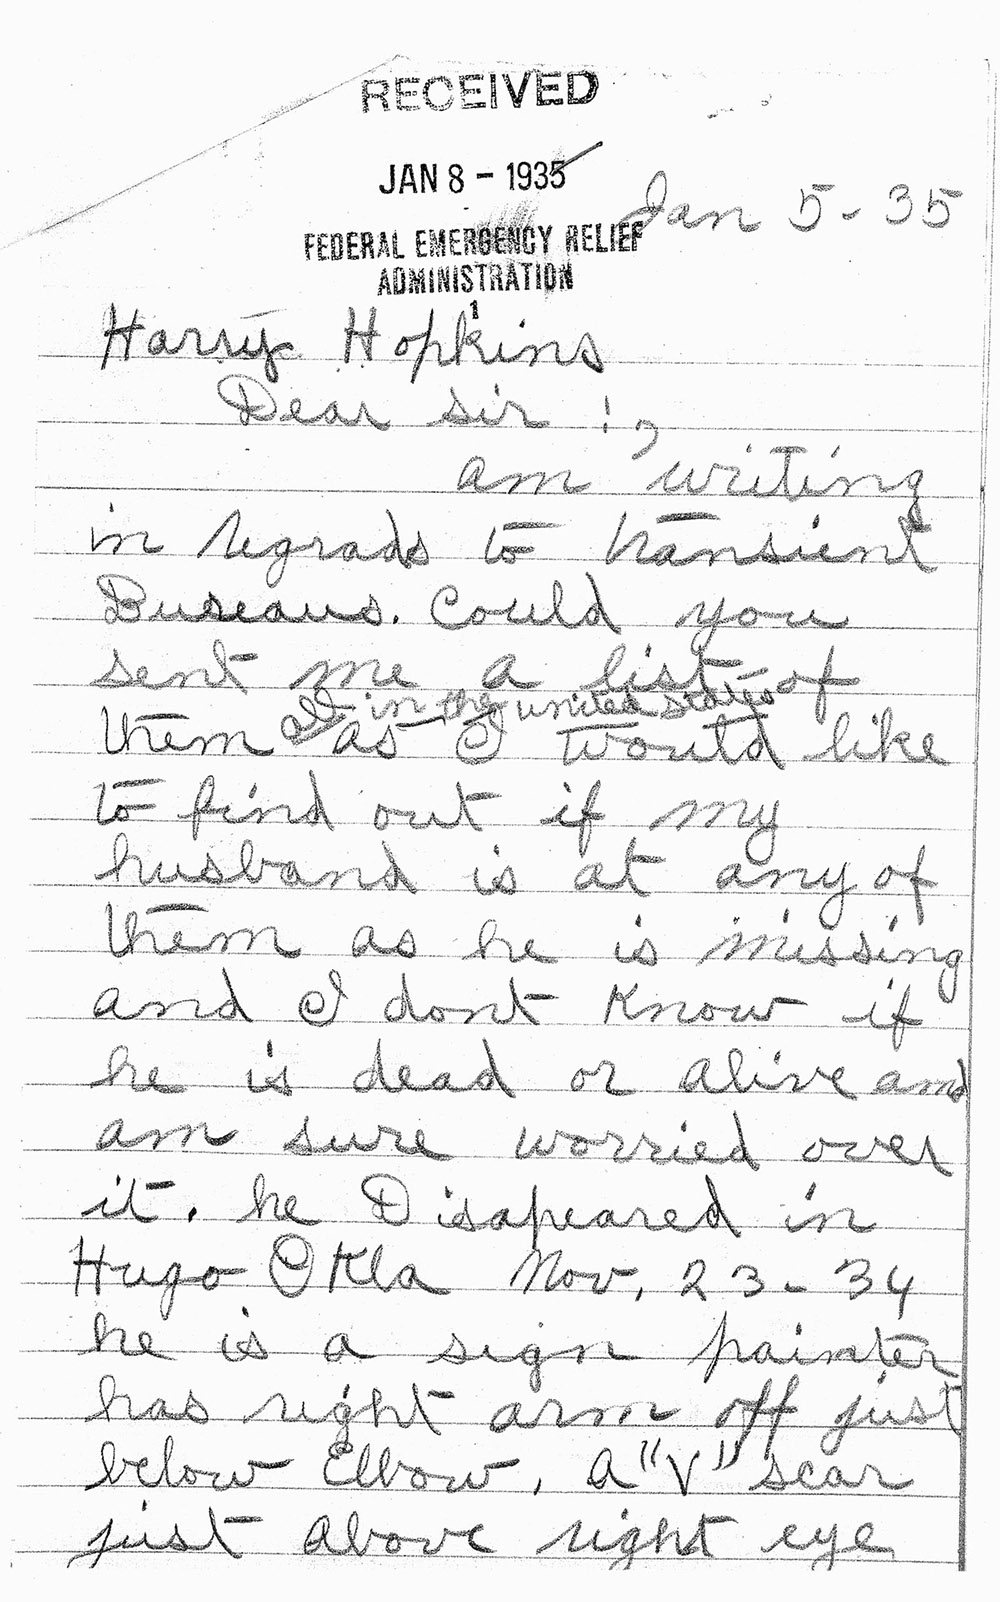 RECEIVED
JAN 8 - 1935
Jan 5 - 35
FEDERAL EMERGENCY RELIEF
ADMINISTRATION
1
Harry Hopkins
Dear sir :,
am writing
in regrads to transient
Bureaus. Could you
sent me a list of
all in the united states
them as I would like
to find out if my
husband is at any of
them as he is missing
and I dont Know if
he is dead or alive and
am sure worried over
it. he Disapeared in
Hugo Okla Nov, 23 - 34
he is a sign painter
has right arm off just
below Elbow, a "V" scar
just above right eye